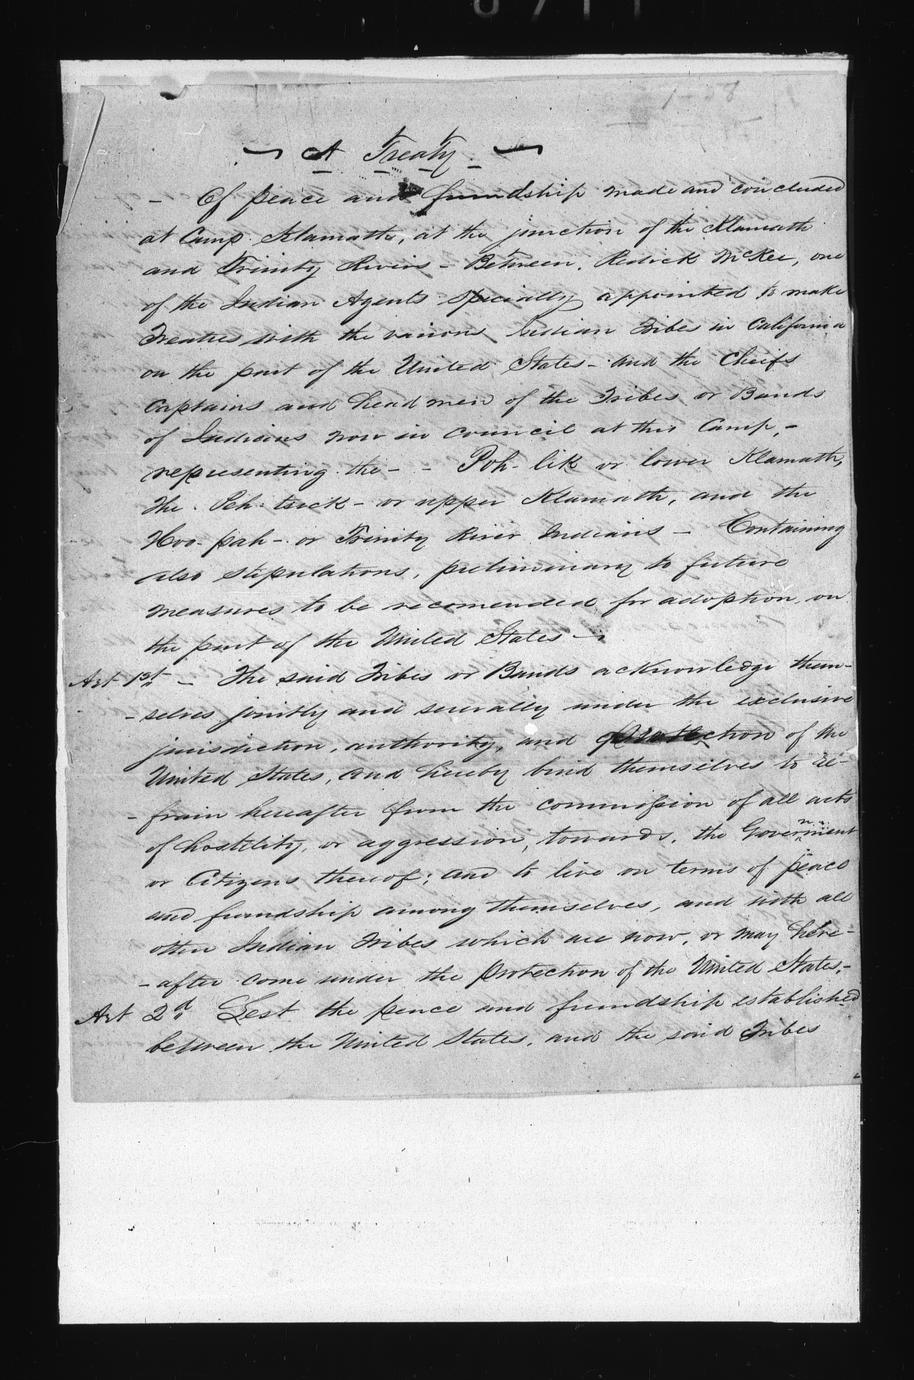 A Treaty.
- Of peace and friendship made and concluded
at Camp Klamath, at the junction of the Klamath
and Trinity Rivers - Between, Redick McKee, one
of the Indian Agents specially appointed to make
Treaties with the various Indian Tribes in California
on the part of the United States - and the Chiefs
Captains and head men of the Tribes or Bands
of Indians now in council at this Camp, -
representing the - - Poh-lik or lower Klamath,
The Peh-tuck - or upper Klamath, and the
Hoo-pah - or Trinity River Indians - Containing
also stipulations, preliminary to future
measures to be recomended for adoption, on
the part of the United States -
Art 1st - The said Tribes or Bands acknowledge them-
- selves jointly and severally under the exclusive
jurisdiction, authority, and protection of the
United States, and hereby bind themselves to re-
- frain hereafter from the commission of all acts
of hostility, or aggression, towards, the Government
or Citizens thereof; and to live on terms of peace
and friendship among themselves, and with all
other Indian Tribes which are now, or may here-
- after come under the protection of the United States, -
Art 2d Lest the peace and friendship established
between the United States, and the said Tribes